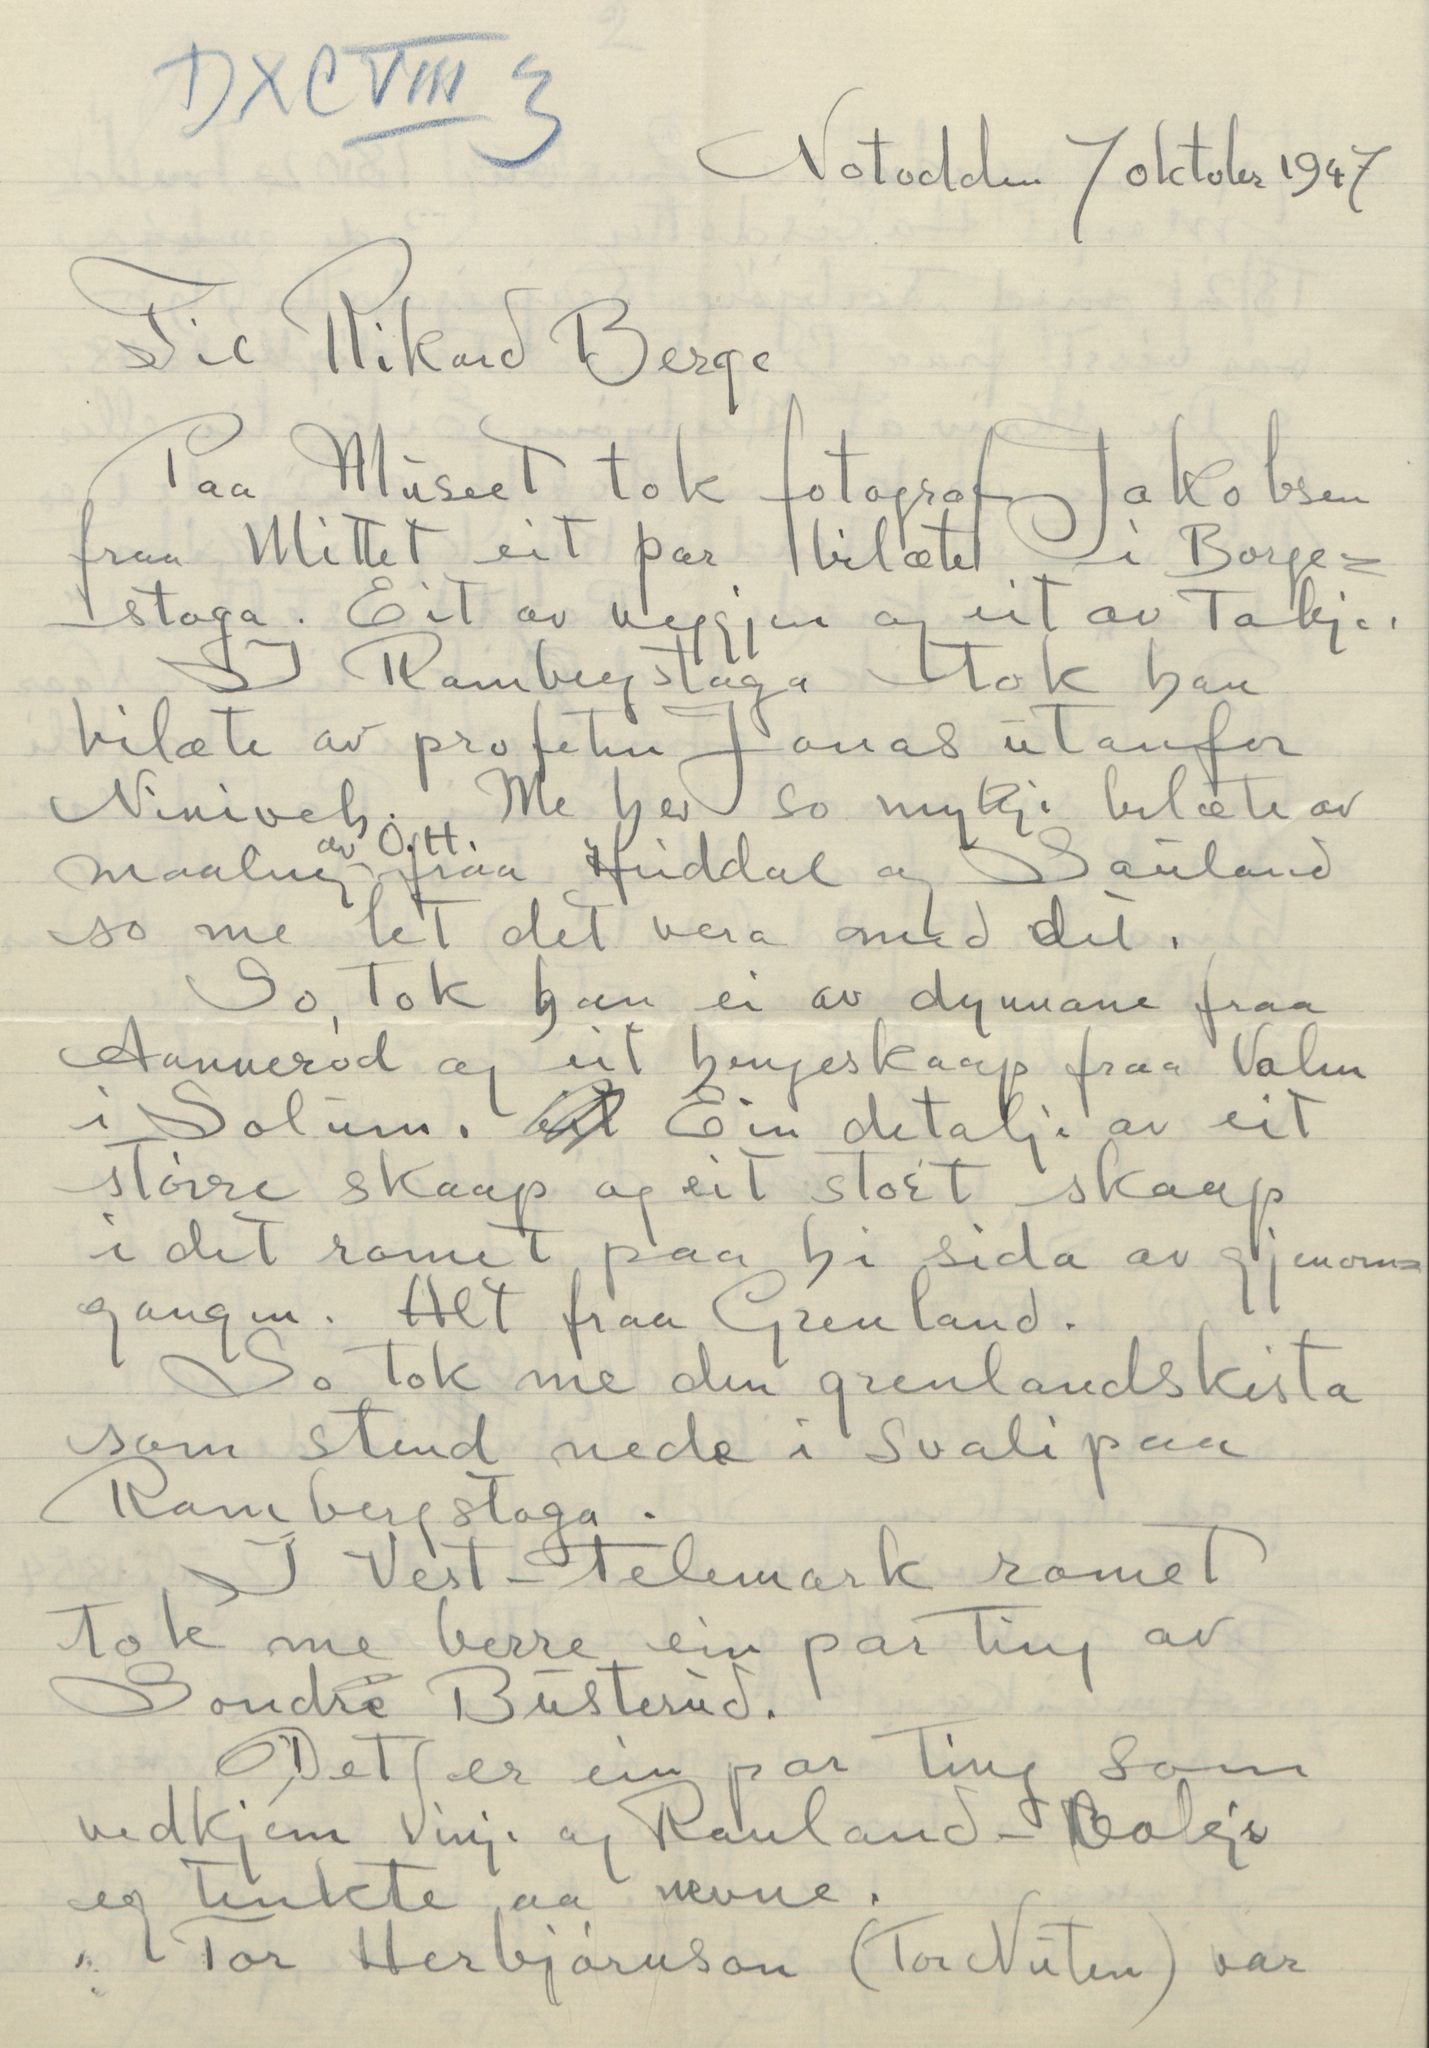 DXCVIII 3
Notodden 7 oktober 1947
Til Rikard Berge
Paa Museet tok fotograf Jakobsen
fraa Mittet eit par bilæte i Borge=
stoga. Eit av veggjen og eit av Takje.
I Rambergstoga tok han
bilæte av profeten Jonas utanfor
Niniveh. Me hev so mykje bilæte av
av O.H.
maaling fraa Hiddal og Sauland
so me let det vera med det.
So tok han ei av dynnane fraa
Aannerød og eit hengeskaap fraa Valen
i Solum. Ein detalje av eit
større skaap og eit stort skaap
i det romet paa hi sida av gjenom=
gangen. Alt fraa Grenland.
So tok me den grenlandskista
som stend nede i svali paa
Rambergstoga.
I Vest-Telemark romet
tok me berre ein par ting av
Sondre Busterud.
Det er ein par ting som
vedkjem Vinje og Rauland-Bokje
eg tenkte aa nevne.
Tor Herbjørnson (Tor Nuten) var